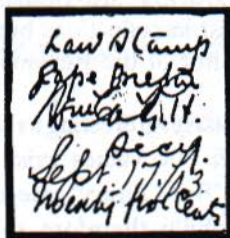 Law Stamp
Cape Breton
Secy.
Sept. 17.
Twenty five Cents